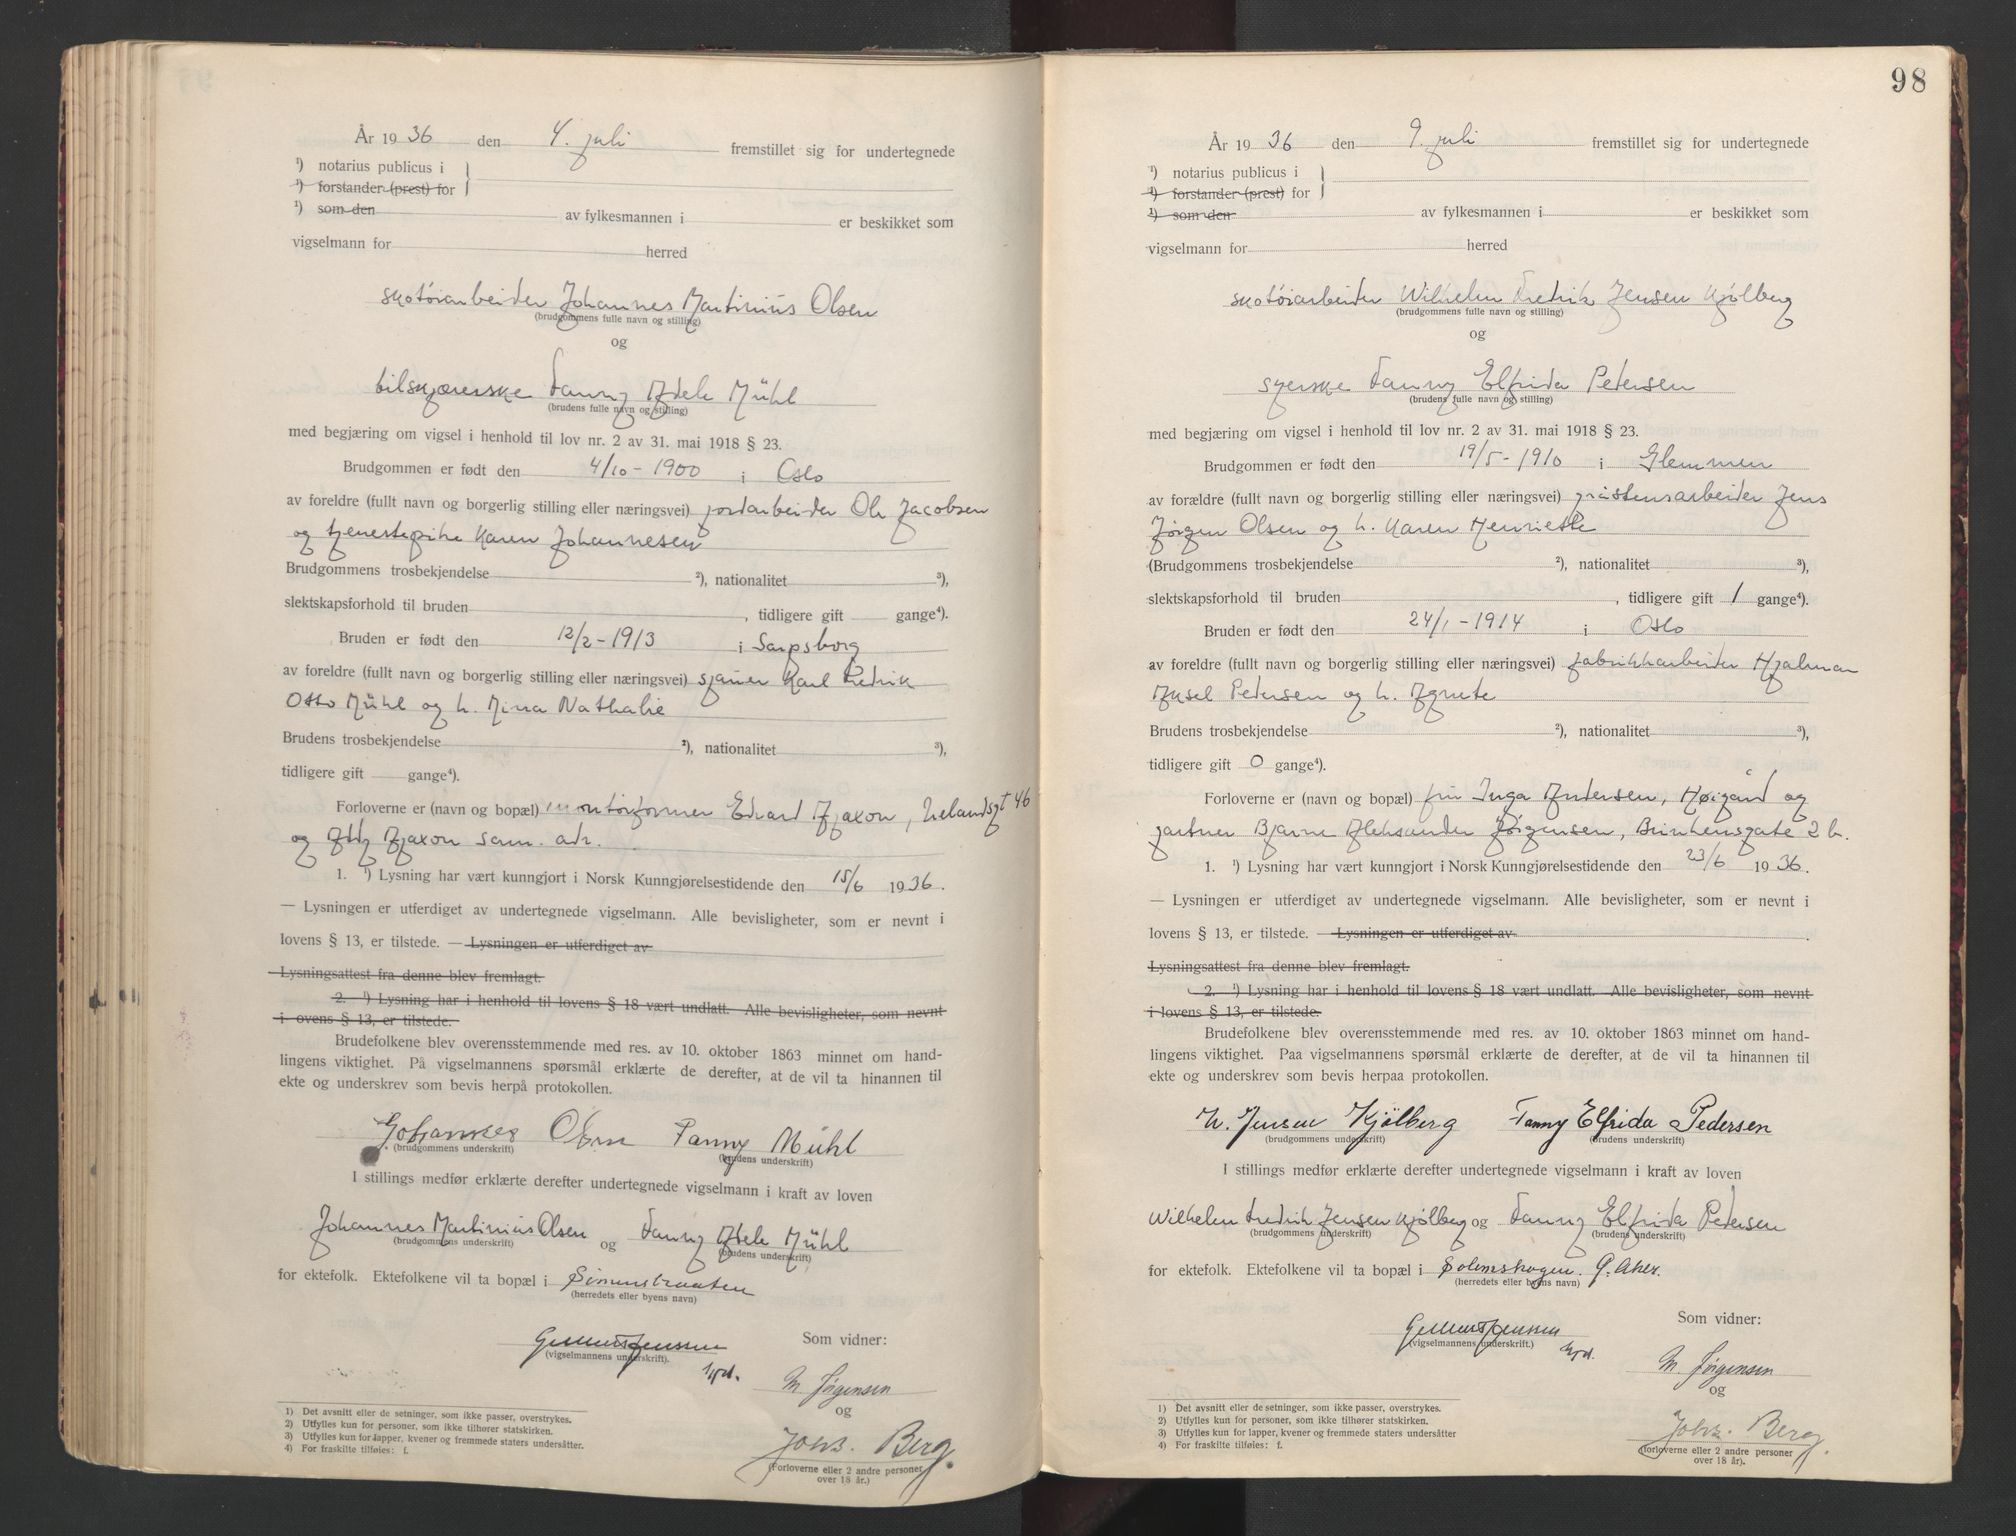 År 1936 den 4. juli fremstillet sig for undertegnede
¹) notarius publicus i
¹) forstander (prest) for
¹) som den av fylkesmannen i er beskikket som
vigselmann for herred
skotøiarbeider Johannes Martinius Olsen
(brudgommens fulle navn og stilling)
og
tilskjærerske Fanny Adele Mühl
(brudens fulle navn og stilling)
med begjæring om vigsel i henhold til lov nr. 2 av 31. mai 1918 § 23.
Brudgommen er født den 4/10-1900 i Oslo
av foreldre (fullt navn og borgerlig stilling eller næringsvei) jordarbeider Ole Jacobsen
og tjenestepike Karen Johannesen
Brudgommens trosbekjendelse ²), nationalitet ³),
slektskapsforhold til bruden , tidligere gift gange⁴).
Bruden er født den 12/2-1913 i Sarpsborg
av foreldre (fullt navn og borgerlig stilling eller næringsvei) sjauer Karl Fredrik
Otto Mühl og h. Mina Nathalie
Brudens trosbekjendelse ²), nationalitet ³),
tidligere gift gange⁴).
Forloverne er (navn og bopæl) montørformer Edvard Ajaxon, Uelandsgt 46
og Ajaxon sam. adr.
1. ¹) Lysning har vært kunngjort i Norsk Kunngjørelsestidende den 15/6 1936.
— Lysningen er utferdiget av undertegnede vigselmann. Alle bevisligheter, som er nevnt i
lovens § 13, er tilstede. — Lysningen er utferdiget av
Lysningsattest fra denne blev fremlagt.
2. ¹) Lysning har i henhold til lovens § 18 vært undlatt. Alle bevisligheter, som nevnt
i ovens § 13, er tilstede.
Brudefolkene blev overensstemmende med res. av 10. oktober 1863 minnet om hand-
lingens viktighet. På vigselmannens spørsmål erklærte de derefter, at de vil ta hinannen til
ekte og underskrev som bevis herpå protokollen.
Johannes Olsen Fanny Mühl
(brudgommens underskrift) (brudens underskrift)
I stillings medfør erklærte derefter undertegnede vigselmann i kraft av loven
Johannes Martinius Olsen og Fanny Adele Mühl
(brudgommens underskrift) (brudens underskrift)
for ektefolk. Ektefolkene vil ta bopæl i Simenstraaten
(herredets eller byens navn)
Som vidner:
(vigselmannens underskrift).
M. Jørgensen
og
Johs. Berg.
(Forloverne eller 2 andre personer
over 18 år.)
1) Det avsnitt eller de setninger, som ikke passer, overstrykes.
2) Utfylles kun for personer, som ikke tilhører statskirken.
3) Utfylles kun for lapper, kvener og fremmede staters undersåtter.
4) For fraskilte tilføies: f.
98
År 1936 den 9. juli fremstillet sig for undertegnede
¹) notarius publicus i
¹) forstander (prest) for
¹) som den av fylkesmannen i er beskikket som
vigselmann for herred
skotøiarbeider Wilhelm Fredrik Jensen Kjølberg
(brudgommens fulle navn og stilling)
og
syerske Fanny Elfrida Petersen
(brudens fulle navn og stilling)
med begjæring om vigsel i henhold til lov nr. 2 av 31. mai 1918 § 23.
Brudgommen er født den 19/5-1910 i Glemmen
av forældre (fullt navn og borgerlig stilling eller næringsvei) gråstensarbeider Jens
Jørgen Olsen og h. Karen Henriette
(Brudgommens trosbekjendelse ²), nationalitet ³),
slektskapsforhold til bruden , tidligere gift 1 gange⁴).
Bruden er født den 24/1-1914 i Oslo
av foreldre (fullt navn og borgerlig stilling eller næringsvei) fabrikkarbeider Hjalmar
Aksel Pedersen og h. Agnete
Brudens trosbekjendelse ²), nationalitet ³),
tidligere gift 0 gange⁴).
Forloverne er (navn og bopæl) fru Inga Andersen, Høigård og
gartner Bjarne Aleksander Jørgensen, Brinkensgate 2 b.
1. ¹) Lysning har vært kunngjort i Norsk Kunngjørelsestidende den 23/6 1936.
— Lysningen er utferdiget av undertegnede vigselmann. Alle bevisligheter, som er nevnt i
lovens § 13, er tilstede. — Lysningen er utferdiget av .
Lysningsattest fra denne blev fremlagt.
2. ¹) Lysning har i henhold til lovens § 18 vært undlatt. Alle bevisligheter, som nevnt
i lovens § 13, er tilstede.
Brudefolkene blev overensstemmende med res. av 10. oktober 1863 minnet om hand-
lingens viktighet. Paa vigselmannens spørsmål erklærte de derefter, at de vil ta hinannen til
ekte og underskrev som bevis herpaa protokollen.
W. Jensen Kjølberg Fanny Elfrida Pedersen
(brudgommens underskrift) (brudens underskrift)
I stillings medfør erklærte derefter undertegnede vigselmann i kraft av loven
Wilhelm Fredrik Jensen Kjølberg og Fanny Elfrida Petersen
(brudgommens underskrift) (brudens underskrift)
for ektefolk. Ektefolkene vil ta bopæl i Solemskogen. Ø. Aker.
(herredets eller byens navn)
Som vidner:
(vigselmannens underskrift.)
M. Jørgensen
og
Johs. Berg.
(forloverne eller 2 andre personer
over 18 år).
1) Det avsnitt eller de setninger, som ikke passer, overstrykes.
2) Utfylles kun for personer, som ikke tilhører statskirken.
3) Utfylles kun for lapper, kvener og fremmede staters undersåtter
4) For fraskilte tilføies: f.